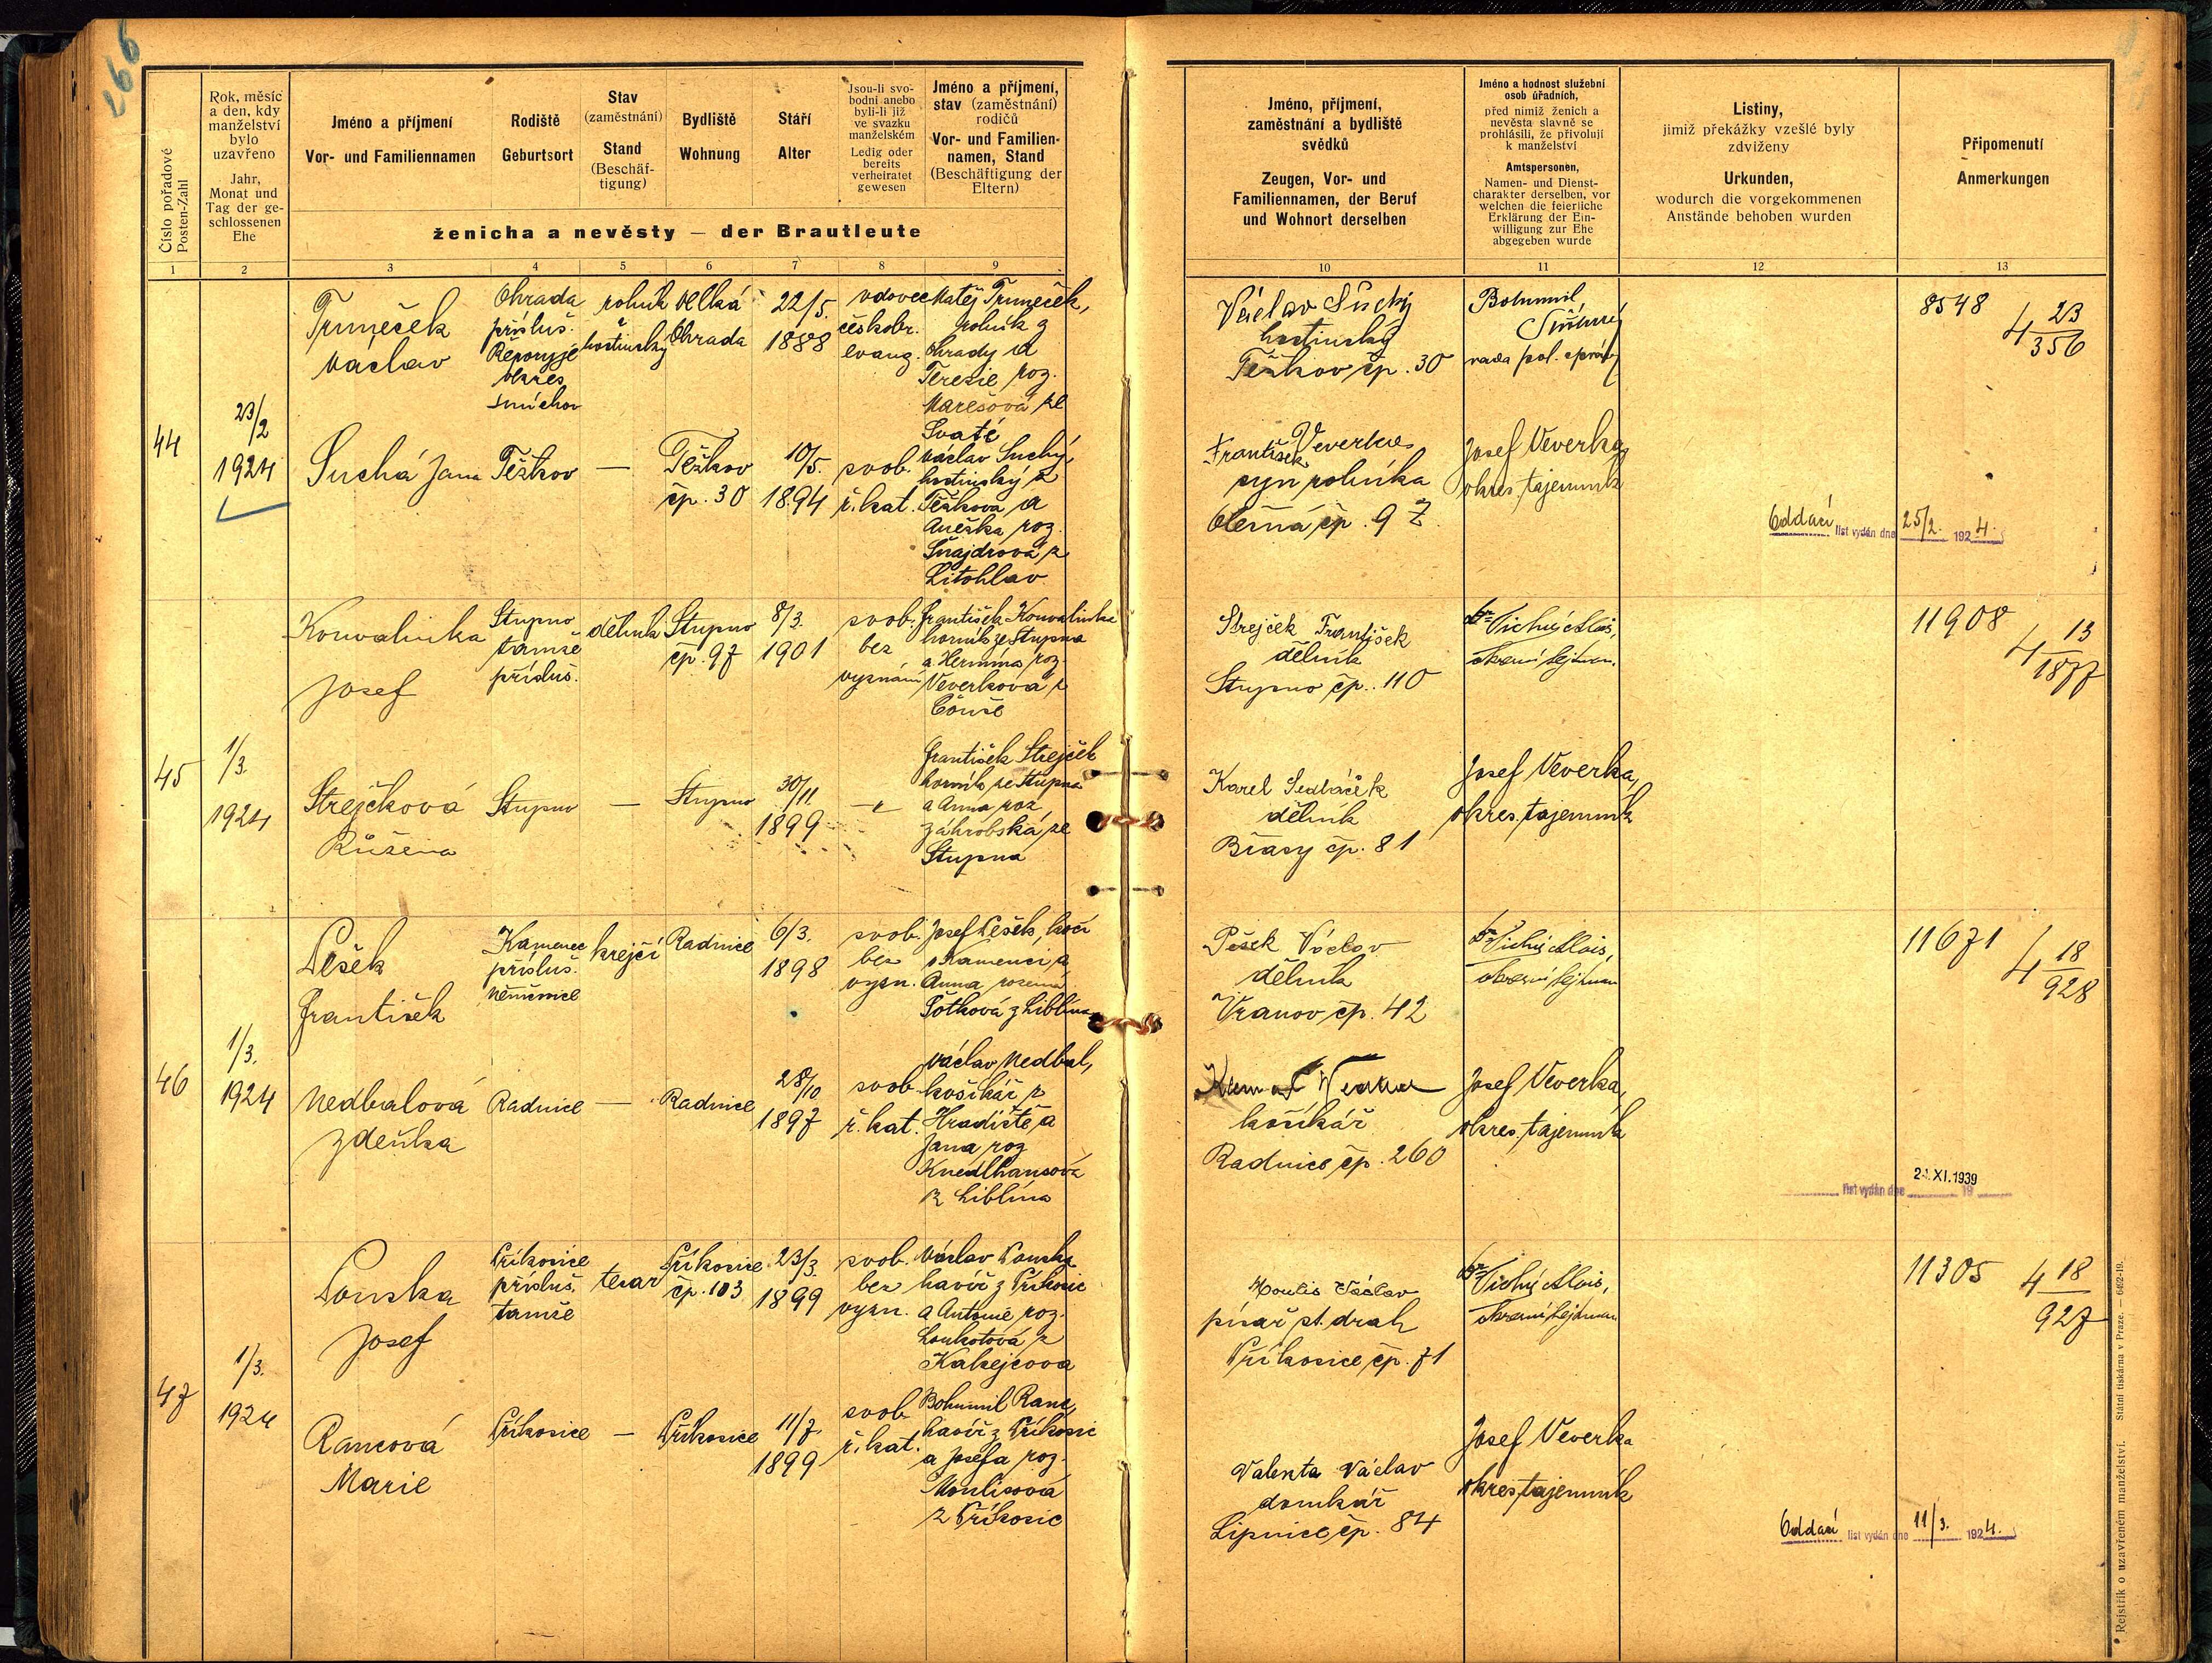 266
Číslo pořadové
Posten-Zahl
Rok, měsíc
a den, kdy
manželství
bylo
uzavřeno
Jahr,
Monat und
Tag der ge-
schlossenen
Ehe
Jméno a příjmení
Vor- und Familiennamen
Rodiště
Geburtsort
Stav
(zaměstnání)
Stand
(Beschäf-
tigung)
Bydliště
Wohnung
Stáří
Alter
Jsou-li svo-
bodni anebo
byli-li již
ve svazku
manželském
Ledig oder
bereits
verheiratet
gewesen
Jméno a příjmení,
stav (zaměstnání)
rodičů
Vor- und Familien-
namen, Stand
(Beschäftigung der
Eltern)
ženicha a nevěsty — der Brautleute
Jméno, příjmení,
zaměstnání a bydliště
svědků
Zeugen, Vor- und
Familiennamen, der Beruf
und Wohnort derselben
Jméno a hodnost služební
osob úřadních,
před nimiž ženich a
nevěsta slavně se
prohlásili, že přivolují
k manželství
Amtspersonen,
Namen- und Dienst-
charakter derselben, vor
welchen die feierliche
Erklärung der Ein-
willigung zur Ehe
abgegeben wurde
Listiny,
jimiž překážky vzešlé byly
zdviženy
Urkunden,
wodurch die vorgekommenen
Anstände behoben wurden
Připomenutí
Anmerkungen
1 2 3 4 5 6 7 8 9 10 11 12 13
44
23/2
1924
Trumeček
Václav
Ohrada
přísluš.
Řeporyje
okres
Smíchov
rolník
a
hostinský
Velká
Ohrada
22/5.
1888
vdovec
českobr.
evang.
Matěj Trumeček,
rolník z
Ohrady a
Terezie roz.
Marešová ze
Svaté
Suchá Jana
Těškov
—
Těškov
čp. 30
10/5.
1894
svob.
ř. kat.
Václav Suchý,
hostinský z
Těškova a
Anežka roz.
Šnajdrová z
Litohlav
Václav Suchý
hostinský
Těškov čp. 30
František Veverka
syn rolníka
Olešná čp. 97
Bohumil
rada pol. správy
Josef Veverka,
okres. tajemník
Oddací list vydán dne 25/2. 1924.
8548
4 23/356
45
1/3.
1924
Konvalinka
Josef
Stupno
tamže
přísluš.
dělník
Stupno
čp. 97
8/3.
1901
svob.
bez
vyznání
František Konvalinka
horník ze Stupna
a Hermína roz.
Veverková z
Strejčková
Růžena
Stupno
—
Stupno
30/11
1899
—"—
František Strejček
horník ze Stupna
a Anna roz.
Záhrobská ze
Stupna
Strejček František
dělník
Stupno čp. 110
Karel Sedláček
dělník
Břasy čp. 81
Dr Tichý Alois,
okresní hejtman.
Josef Veverka,
okres. tajemník
11908
4 13/1877
46
1/3.
1924
Pešek
František
Kamenec
přísluš.
Němčovice
krejčí
Radnice
6/3.
1898
svob.
bez
vyzn.
Josef Pešek, kočí
v Kamenci a
Anna rozená
Šotková z Liblína
Nedbalová
Zdeňka
Radnice
—
Radnice
28/10
1897
svob.
ř. kat.
Václav Nedbal,
košíkář z
Hradiště a
Jana roz.
Knedlhansová
z Liblína
Pešek Václav
dělník
Vranov čp. 42
košíkář
Radnice čp. 260
Dr Tichý Alois,
okresní hejtman
Josef Veverka,
okres. tajemník
list vydán dne 24.XI.1939 19
11671
4 18/928
47
1/3.
1924
Pouska
Josef
Příkosice
přísluš.
tamže
tesař
Příkosice
čp. 103
23/3.
1899
svob.
bez
vyzn.
Václav Pouska
havíř z Příkosic
a Antonie roz.
Loukotová z
Kakejcova
Rancová
Marie
Příkosice
—
Příkosice
11/7.
1899
svob.
ř. kat.
Bohumil Ranc,
havíř z Příkosic
a Josefa roz.
Moulisová
z Příkosic
Moulis Václav
písař st. drah
Příkosice čp. 71
Valenta Václav
domkář
Lipnice čp. 84
Dr Tichý Alois,
okresní hejtman
Josef Veverka
okres. tajemník
Oddací list vydán dne 11/3. 1924.
11305
4 18/927
Rejstřík o uzavřeném manželství. Státní tiskárna v Praze. — 6492-19.